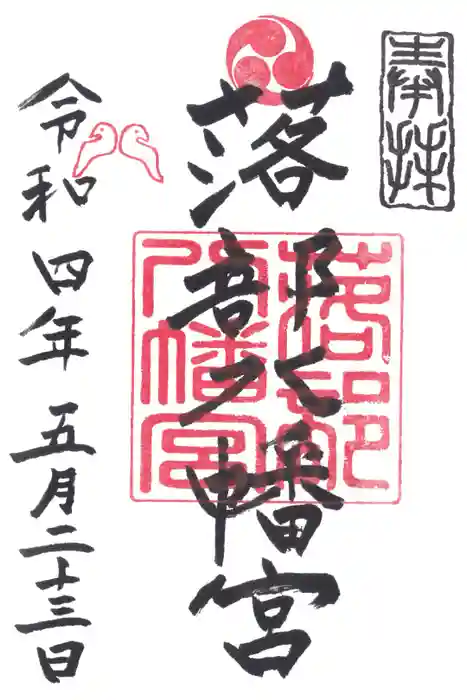 奉拝
落部八幡宮
落部
八幡宮
令和四年五月二十三日